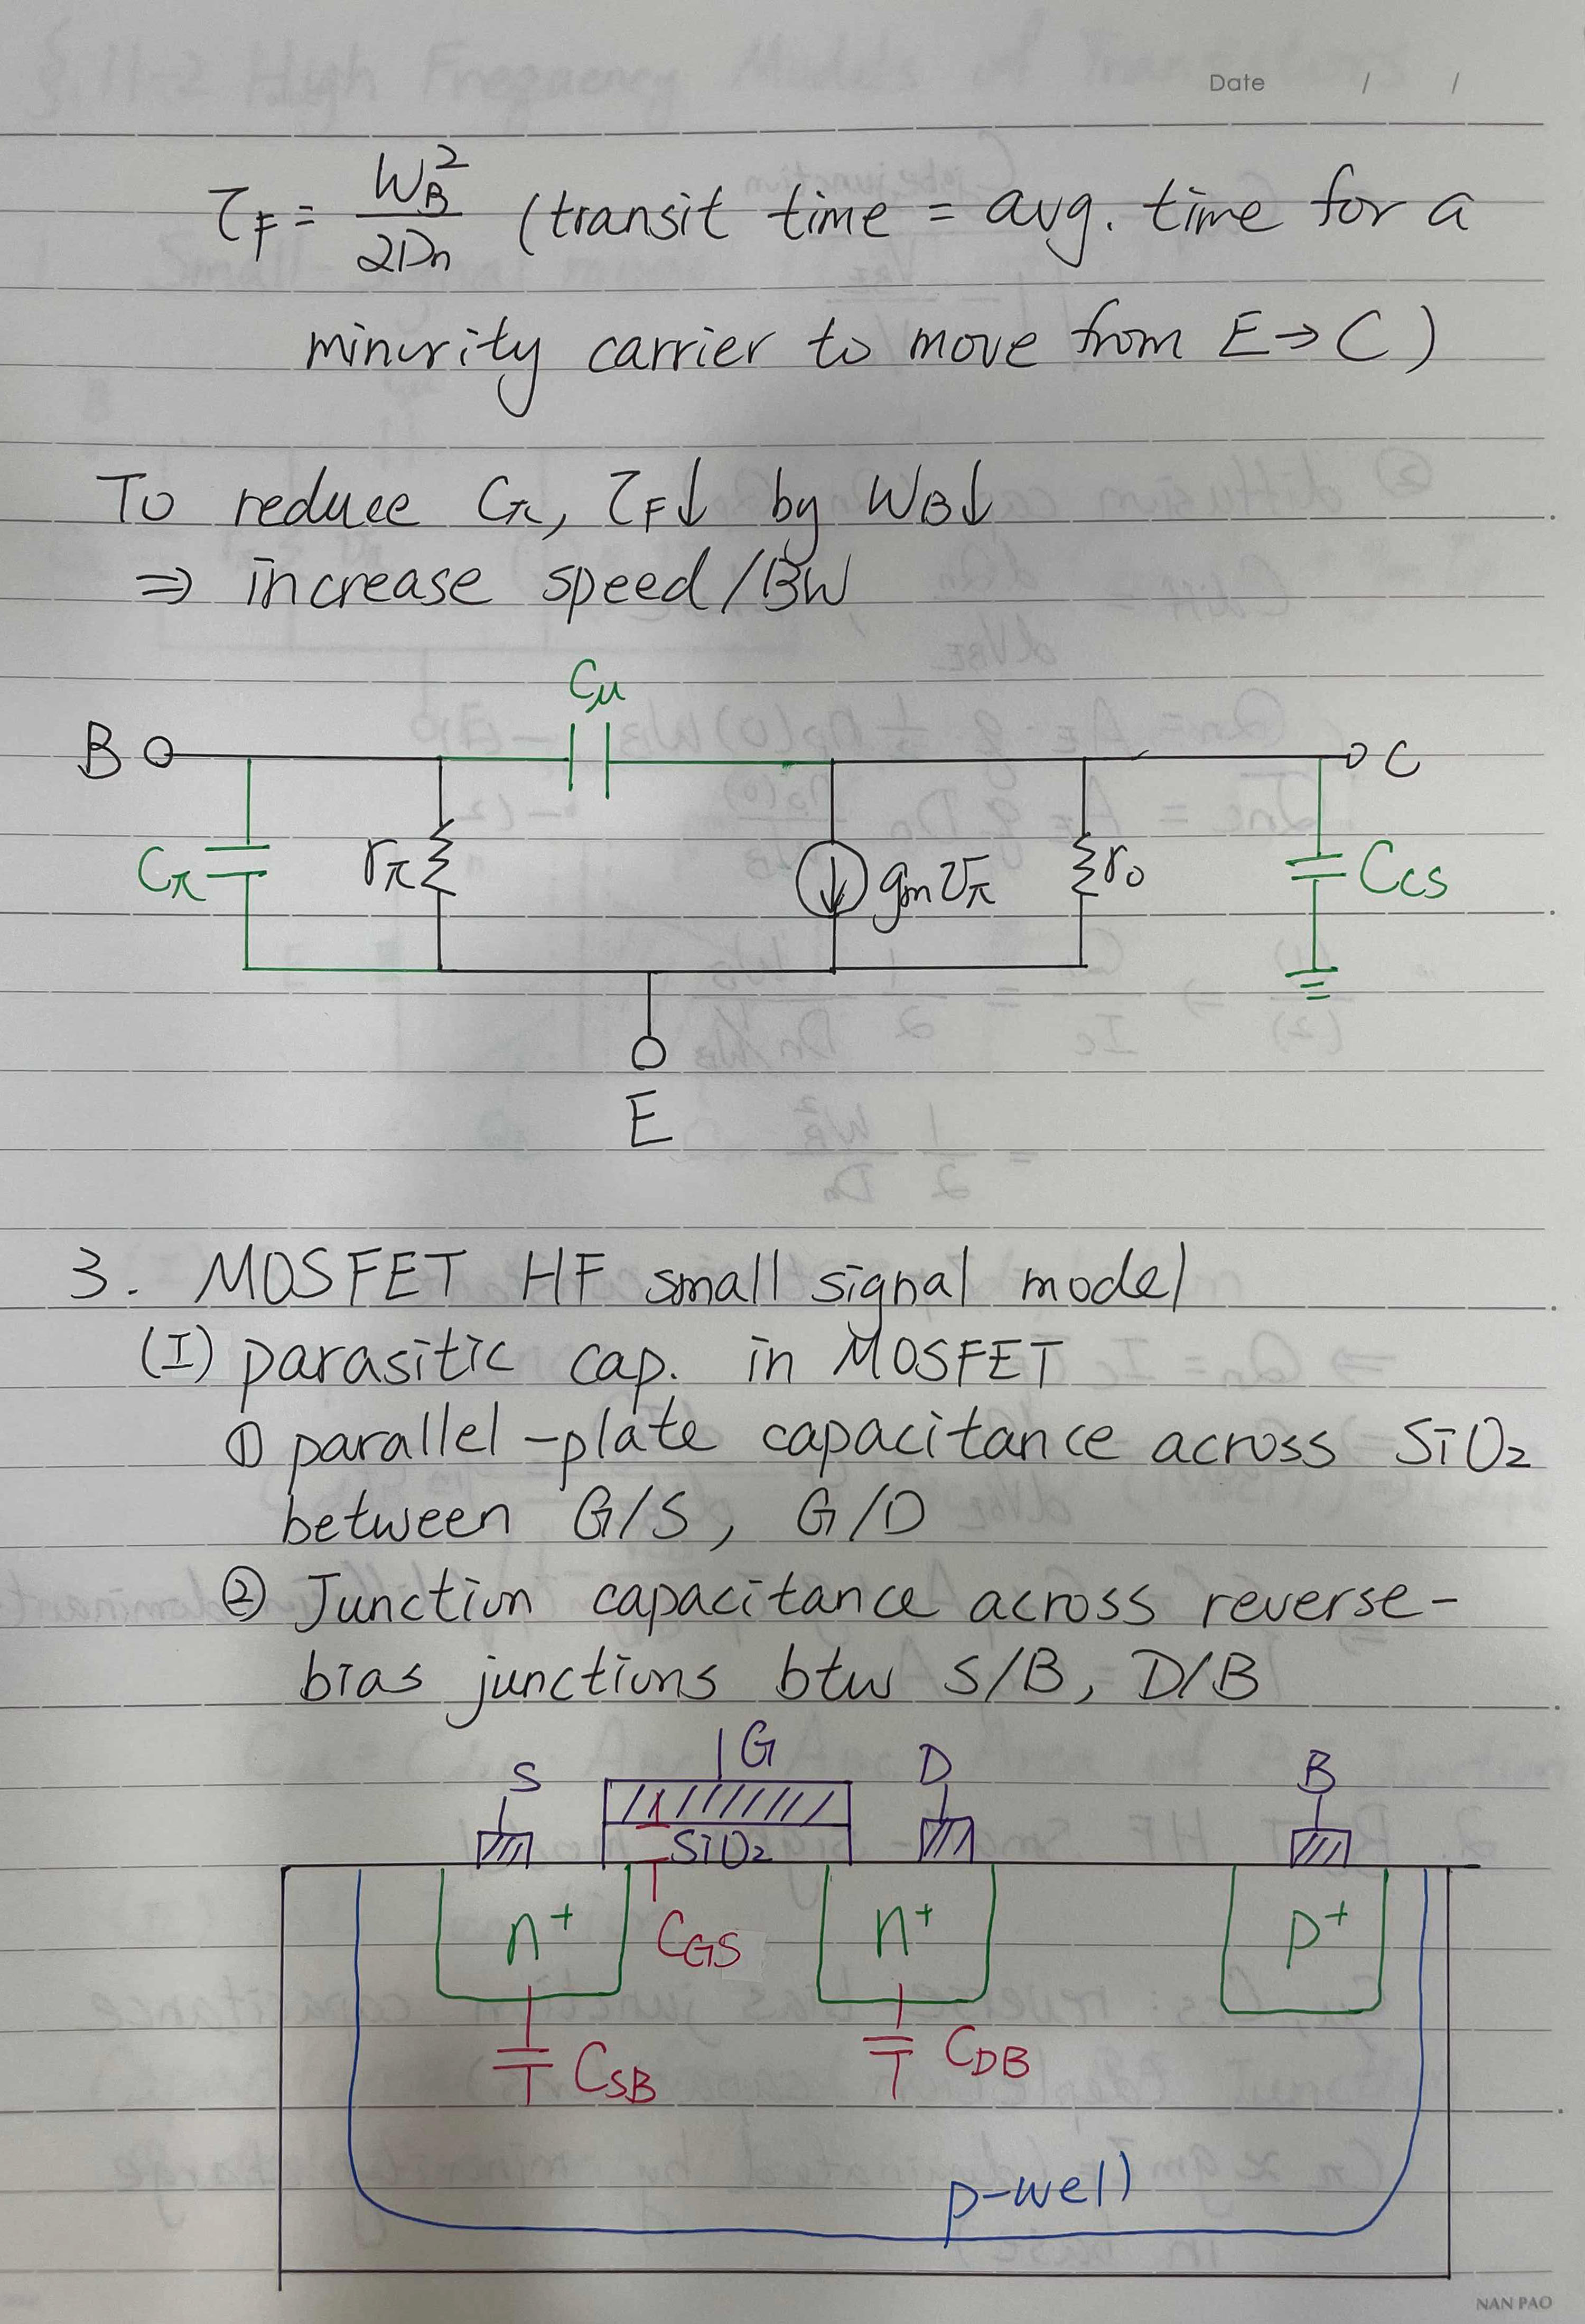 Date / /
τ_F = W_B² / 2Dn (transit time = avg. time for a
minority carrier to move from E → C)
To reduce Cπ, τ_F↓ by W_B↓
⇒ increase speed/BW
Cμ
B C
Cπ rπ gm vπ ro Ccs
E
3. MOSFET HF small signal model
(I) parasitic cap. in MOSFET
① parallel-plate capacitance across SiO₂
between G/S, G/D
② Junction capacitance across reverse-
bias junctions btw S/B, D/B
S G D B
SiO₂
n⁺ C_GS n⁺ p⁺
C_SB C_DB
p-well
NAN PAO